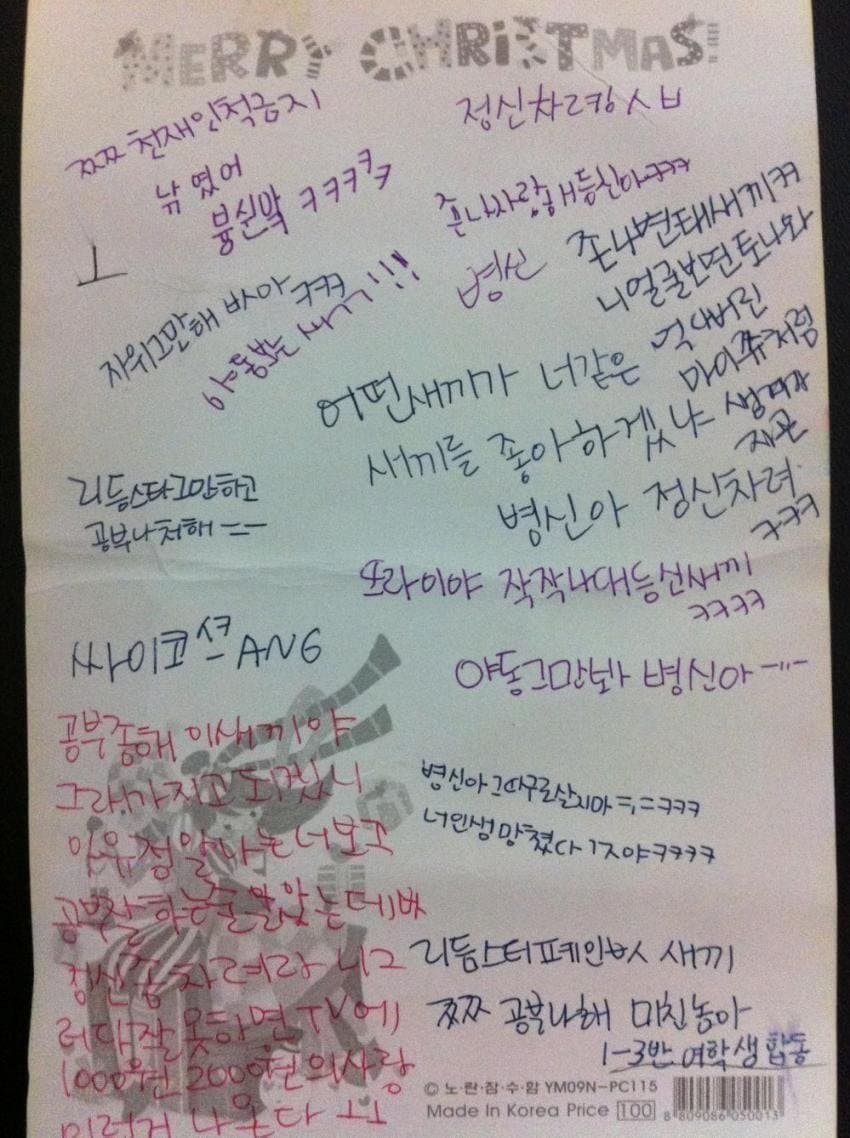 MERRY CHRISTMAS!
쯔쯔 천재인척금지
낚였어
븅쉰박 ㅋㅋㅋㅋㅋ
정신차려킹 ㅅㅂ
존나사랑해등신아ㅋㅋㅋ
병신
존나변태새끼ㅋㅋ
니얼굴보면토나와
자위그만해 바아ㅋㅋㅋ
야동보는 새끼!!!
어떤새끼가 너같은
새끼를 좋아하겠냐
마이쮸처럼
병신아 정신차려
ㅋㅋㅋ
리듬스타그만하고
공부나처해 ㅡㅡ
또라이야 작작나대등신새끼
ㅋㅋㅋㅋ
싸이코 ANG
야동그만봐 병신아 ㅡ...ㅡ
공부좀해 이새끼야
그래가지고 되겠니
정말나는너보고
공부잘하는줄알았는데
정신좀 차려라 니그
러다잘못하면 TV에
1000원 2000원의사랑
이런거 나온다 ㅜㅜ
병신아그따구로살지마ㅋㅋㅋ
너인생망쳤다 ㅋㅋㅋㅋ
리듬스터페인ㅂㅅ 새끼
쯔쯔 공부나해 미친놈아
1-3반 여학생합동
© 노·란·잠·수·함 YM09N-PC115
Made In Korea Price 100
8 809086 050013